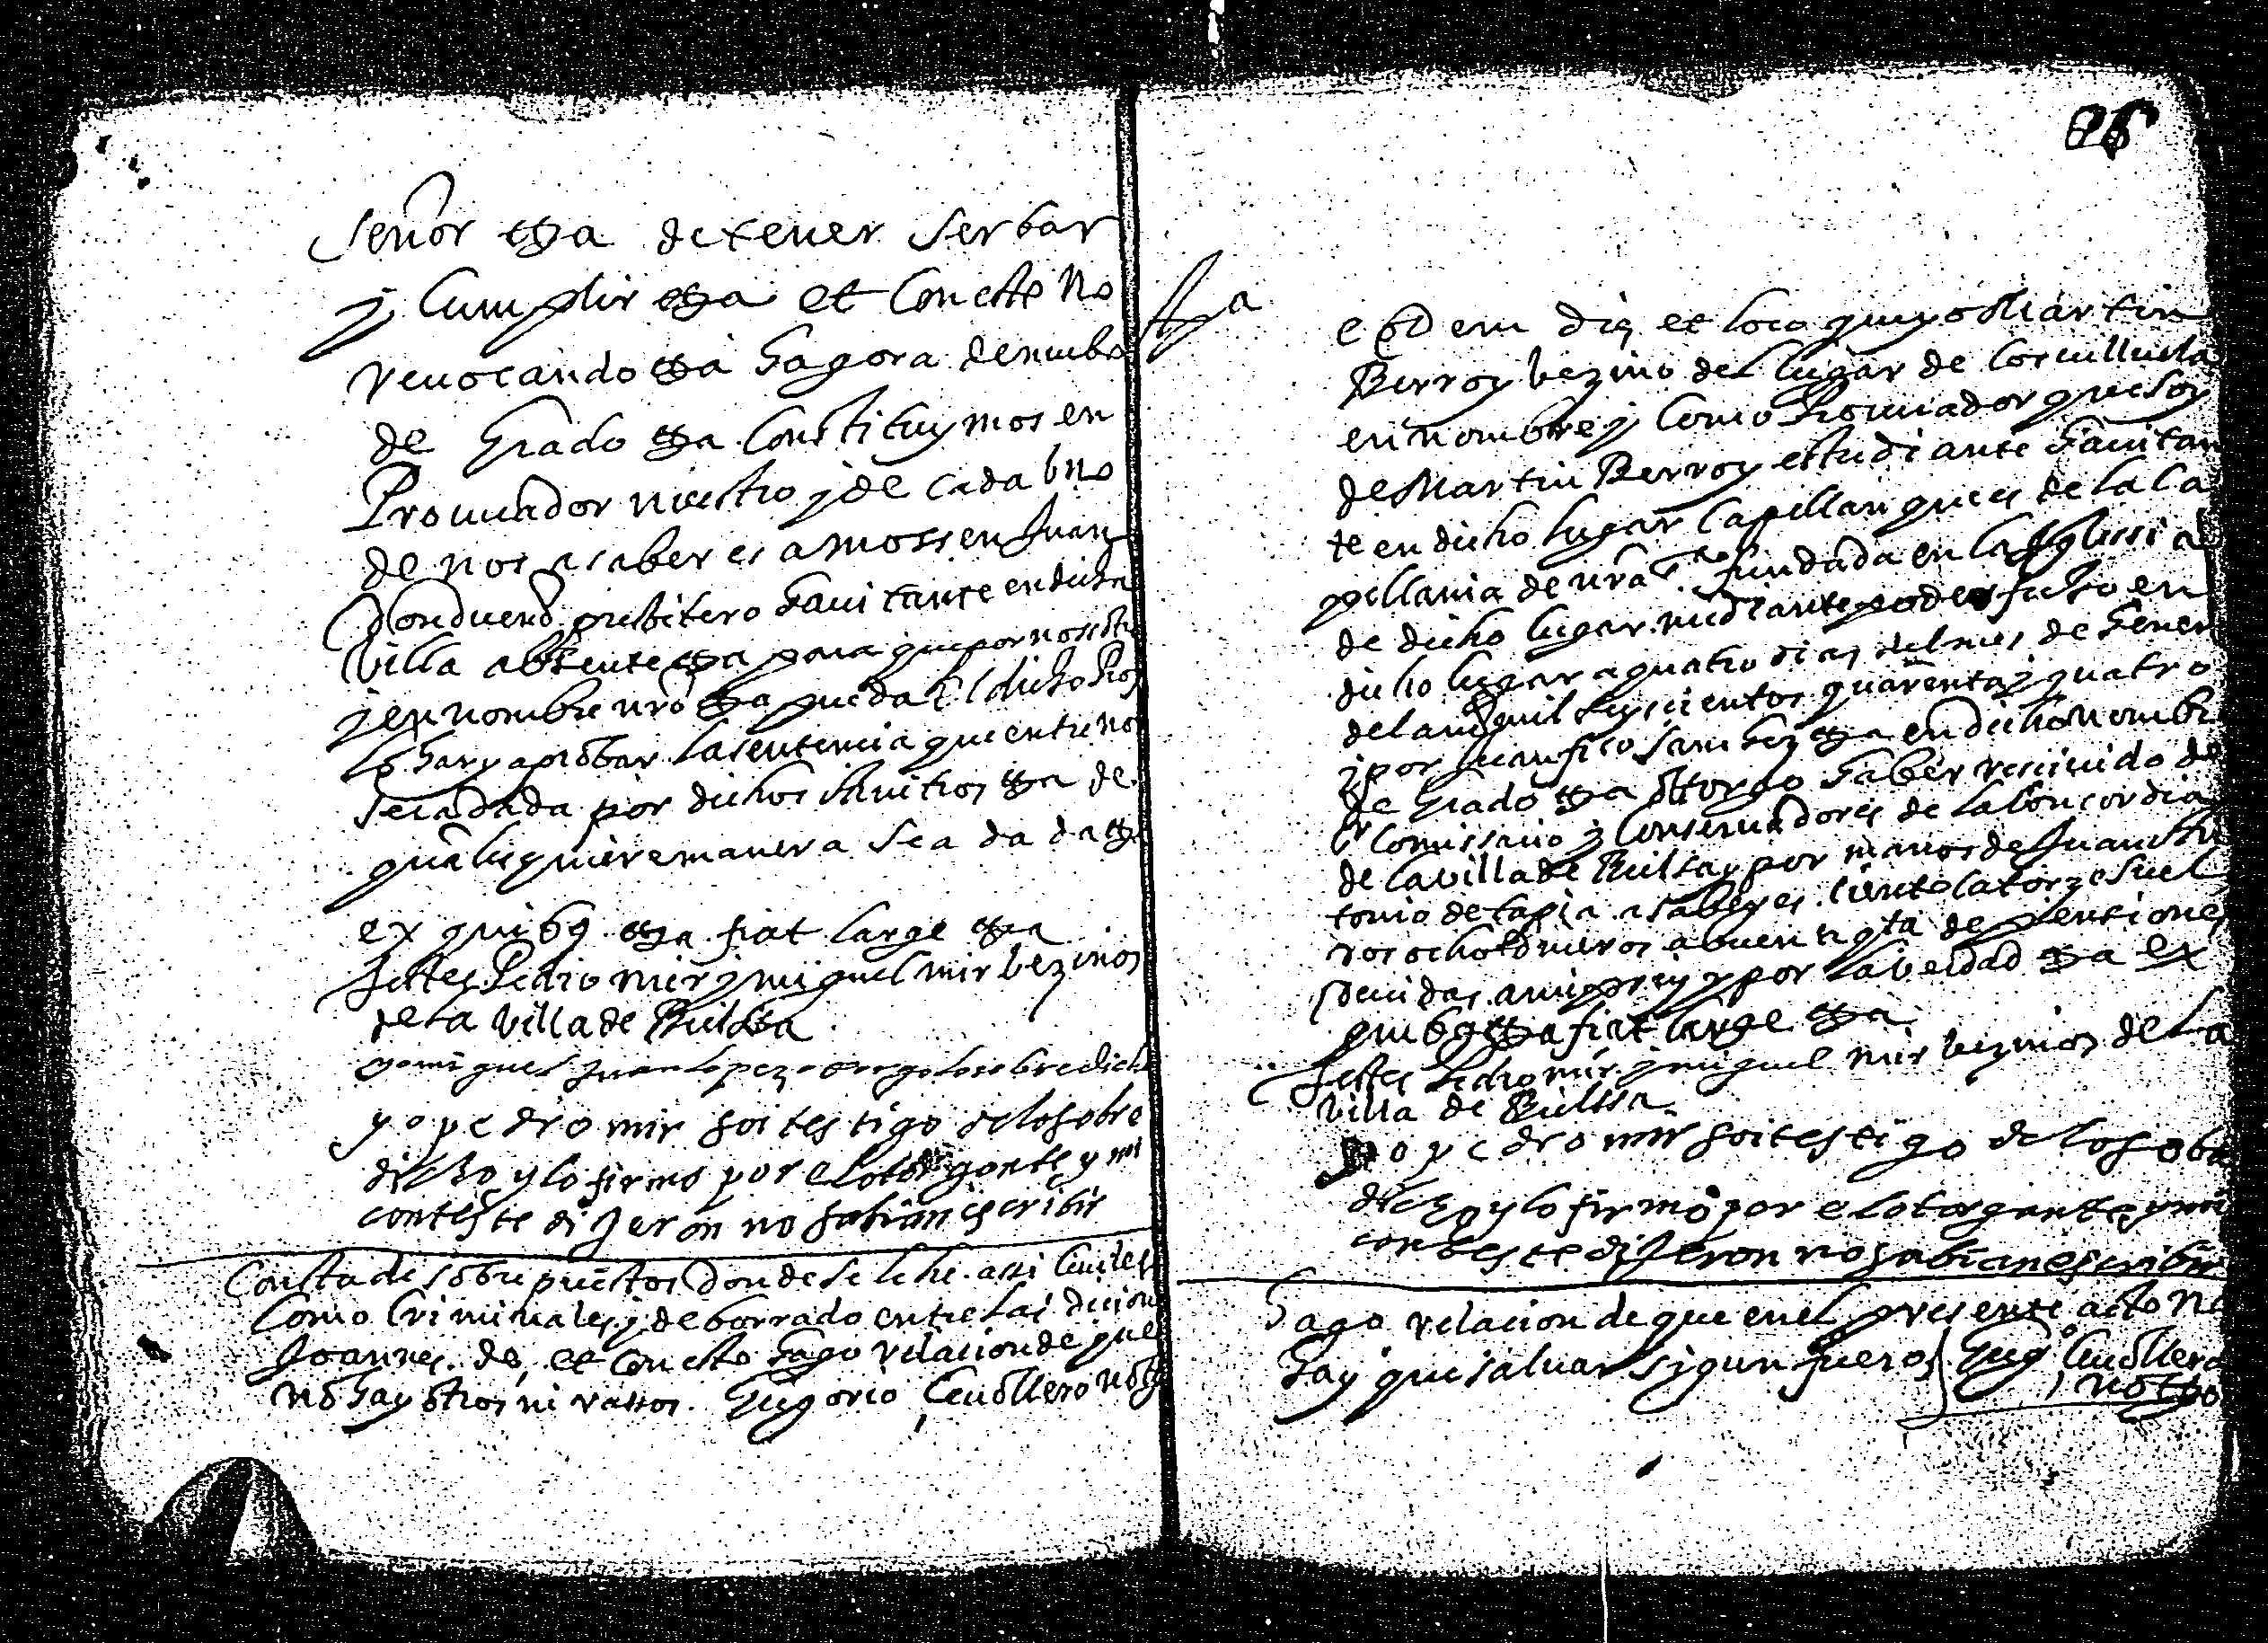 Señor etta de tener serbar
y cumplir etta et con esto no
reuocando etta hagora de nuebo
de grado etta constituymos en
Procurador nuestro y de cada bno
de nos a saber es a mossen Juan
Donduerd presbitero hauitante en dicha
villa absente etta para que por nosotros
y en nombre nro etta pueda el dicho Pror
lohar y aprobar la sentencia que entre nos
sera dada por dichos arbitros etta de
qualesquiere manera sea dada etta
ex quibus etta fiat large etta
testes Pedro mir y miguel mir bezinos
de la villa de Bielssa
yo miguel Juan lopez otorgo lo sobredicho
yo pedro mir soi testigo de lo sobre
dicho y lo firmo por el otorgante y mi
conteste dijeron no sabian escribir
Consta de sobrepuestos donde se lehe assi ciuiles
como criminales y de borrado entre las diciones
Joannes. de, et con esto hago relacion de que
no hay otros ni rassos. Gregorio Cauallero notº
86
Apa
eodem die et loco que yo Martin
Berroy bezino del lugar de Corcilluela
en nombre y como Procurador que soy
de Martin Berroy estudiante hauitan
te en dicho lugar capellan que es de la ca
pellania de nra sra fundada en la Yglessia
de dicho lugar mediante poder fecho en
dicho lugar a quatro dias del mes de henero
del año mil seyscientos quarenta y quatro
y por Juan frco sanchez etta en dicho nombre
de grado etta otorgo haber reciuido de
los Comissario y Conseruadores de la Concordia
de la villa de Bielsa y por manos de Juan An
tonio de tapia a saber es ciento catorze suel
dos ocho dineros a buena qta de pensiones
deuidas a mi prinl y por la verdad etta ex
quibus etta fiat large etta
testes Pedro mir y miguel mir bezinos de la
villa de Bielssa
yo pedro mir soi testigo de lo sobre
dicho y lo firmo por el otorgante y mi
conteste dijeron no sabian escribir
hago relacion de que en el presente acto no
hay que saluar sigun fuero. Gregº Cauallero
notrio